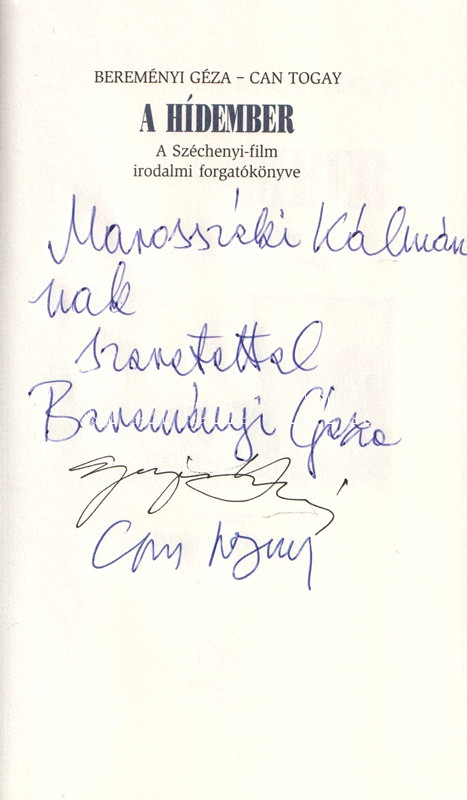 BEREMÉNYI GÉZA – CAN TOGAY
A HÍDEMBER
A Széchenyi-film
irodalmi forgatókönyve
Marosszéki Kálmán
nak
szeretettel
Bereményi Géza
Can Togay